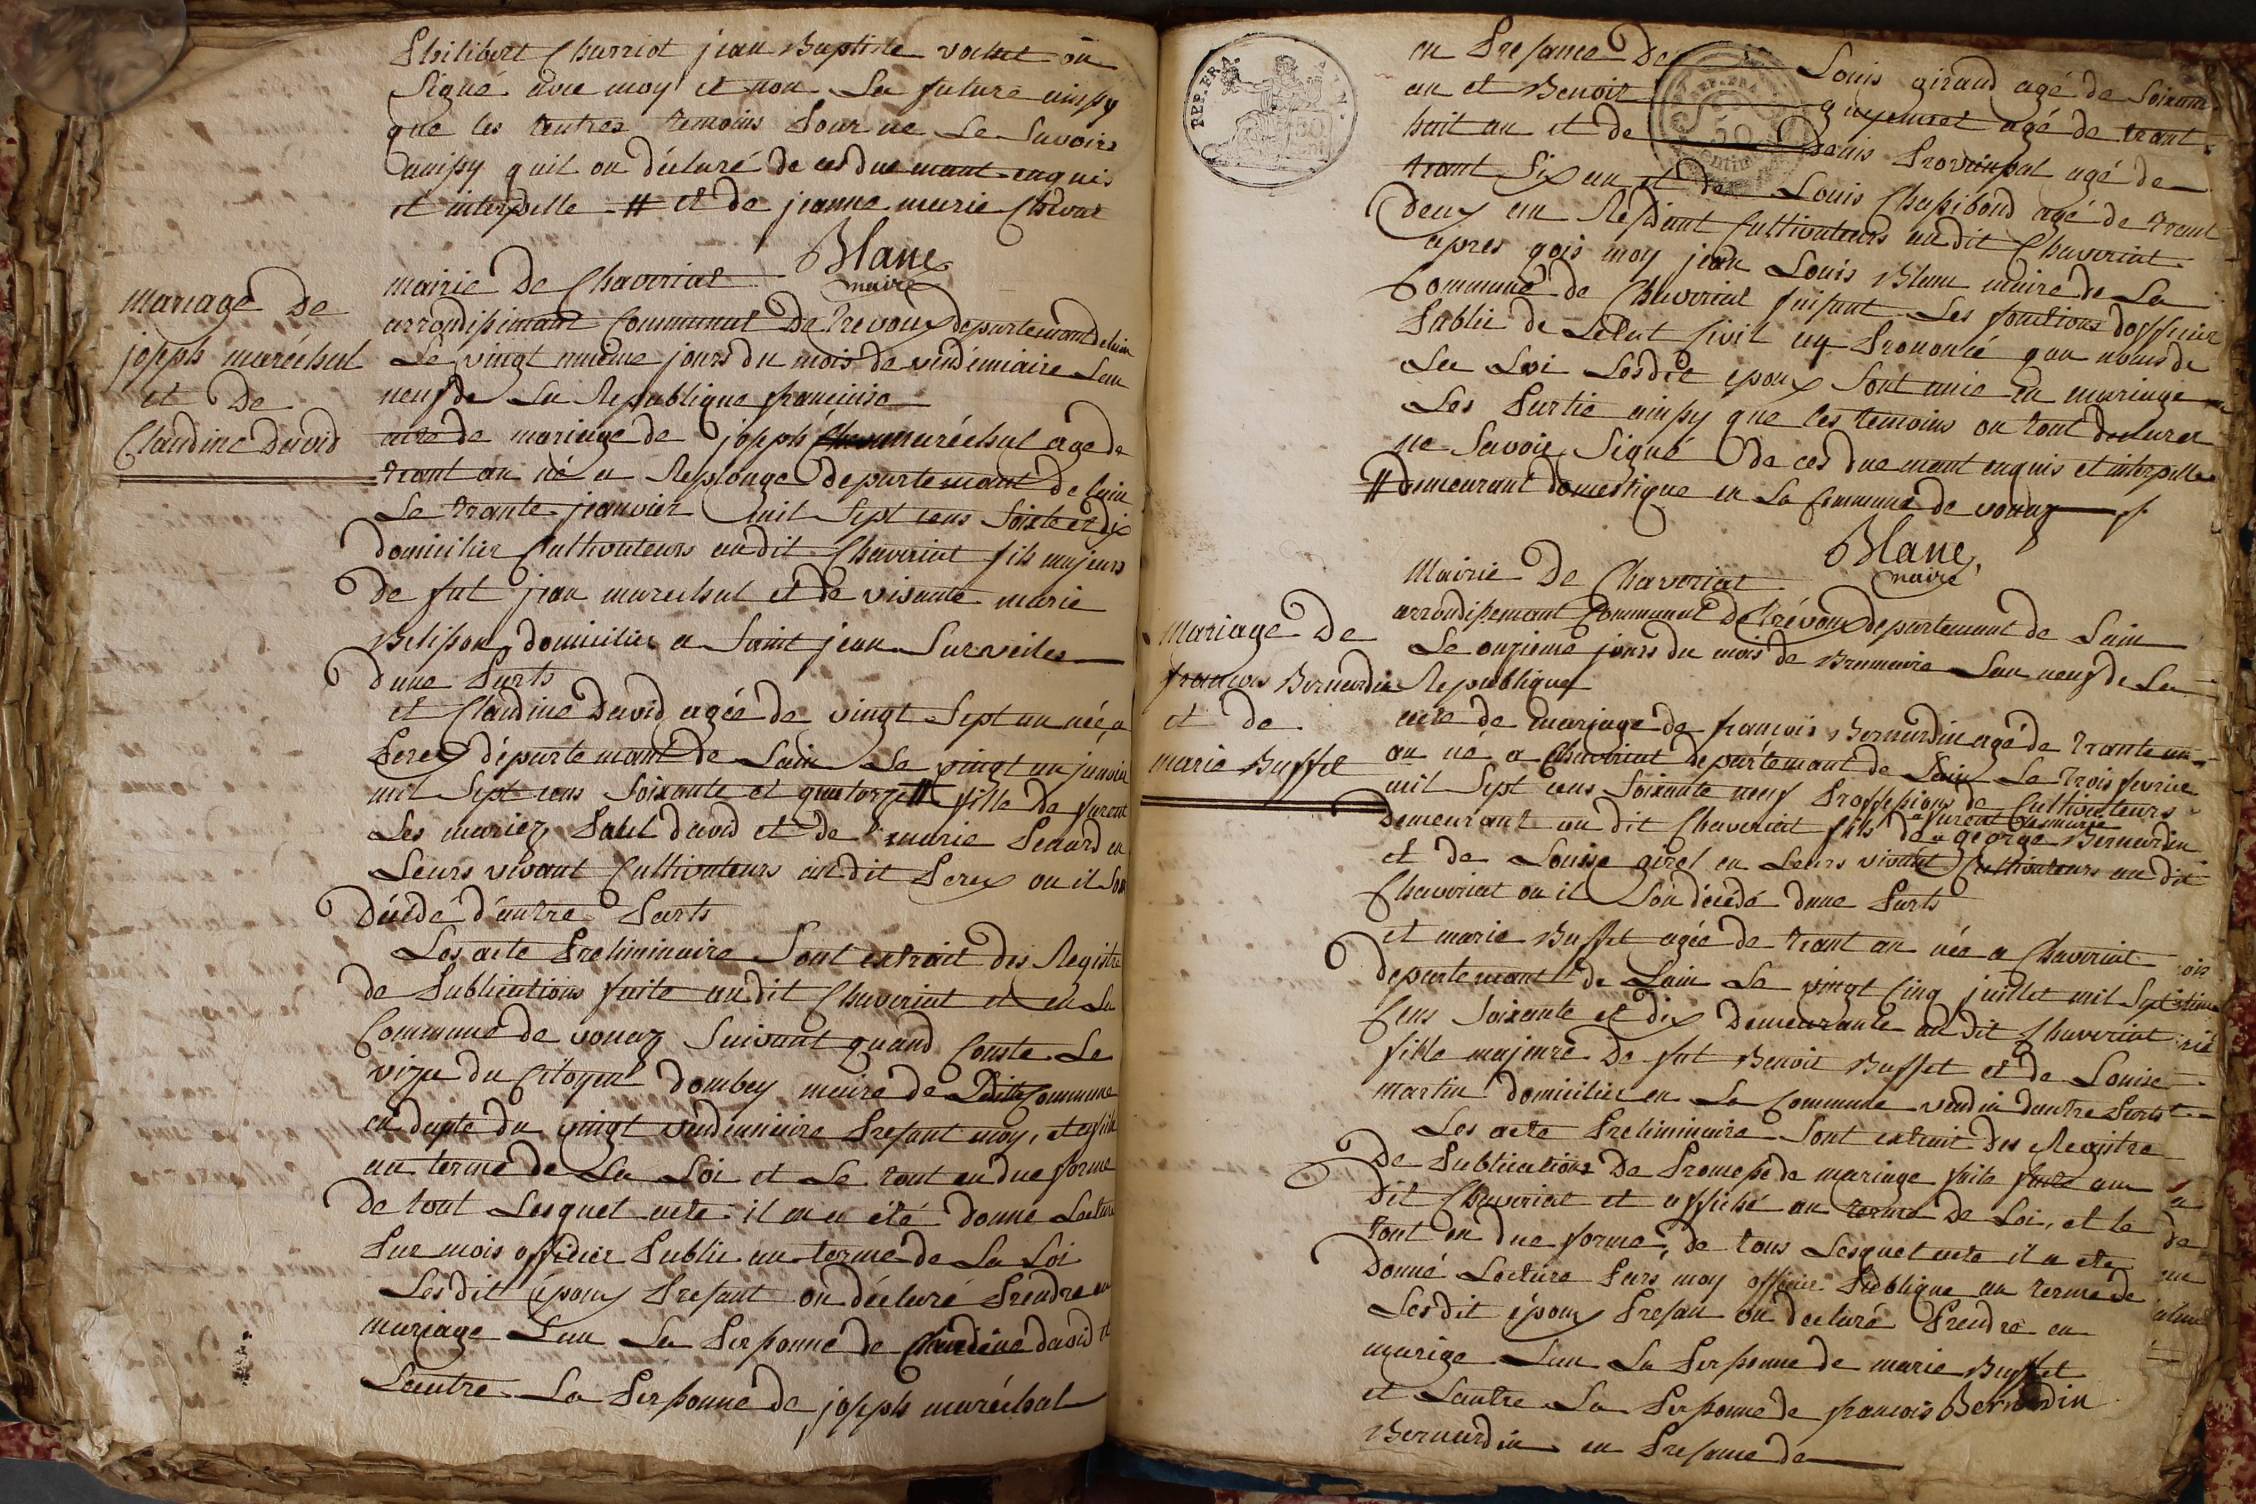 Philibert Charriot jean Baptiste vochet on
Signé avec moy et non La future ainsy
que les autres temoins Pour ne Le Savoire
ainsy quil on déclaré de ces due mant enquis
et interpelle # et de jeanne marie
Blanc
maire
mairie De Chaveriat
arrondissemant Communal De Trevoux departemant de lain
Le vingt jours du mois de vendémiaire Lan
neuf de La Republique francaise
mariage De
joseph maréchal
et De
Claudine David
acte de mariage de joseph maréchal age de
trant an né a Replonge departemant de lain
Le trante janvier mil Sept cens Soixte et dix
domicilier Cultivateurs audit Chaveriat fils majeurs
de fut jean marechal et de vivante marie
domicilier a Saint jean Sur veiles
dune Parts
et Claudine David agée de vingt Sept an née a
Perex départemant de Lain Le vingt un janvier
mil Sept cens Soixante et quatorze # fille de furent
Les mariez Paul david et de marie Penard en
Leurs vivant Cultivateurs audit Perex ou il Son
décédé d'autre Parts
Les acte Preliminaire Sont extrait des Registre
de Publications faite audit Chaveriat et en La
Commune de vonaz Suivant quand Conste Le
viza du Citoyen dombey maire de Ladite Commune
en dapte du vingt vendemiaire Presant moy, et
au terme de La Loi et Le tout en due forme
de tout Lesquel acte il en a été donné Lecture
Par mois officier Public au terme de La Loi
Lesdit époux Presant on déclaré Prendre en
mariage Lun La Personne de Claudine david et
Lautre La Personne de joseph maréchal
REP. FRA.
50
en Presance De Louis giraud agé de Soixante
an et Benoit guyennet agé de trant
huit an et de denis Provinpal agé de
trant Six an et de Louis Chapiboud agé de trant
deux an Residant Cultivateurs audit Chaveriat
apres qois moy jean Louis Blanc maire de La
Commune de Chaveriat faisant Les fonctions dofficier
Public de Letat Civil ay Prononcé quau noms de
La Loi Lesdit epoux Sont unie en mariage
Les Partie ainsy que les temoins on tout declarer
ne Savoir Signé De ces due mant enquis et interpelle
# demeurant domestique en La Commune de vonaz
Blanc
maire
Mairie De Chaveriat
arrondissemant Communal De Trévoux departemant de Lain
Le onzieme jours du mois de Brumaire Lan neuf de La
Republique
Mariage De
francois Bernardin
et de
marie Buffet
acte de mariage de francois Bernardin agé de trante un
an né a Chaveriat departemant de Lain Le trois fevrier
mil Sept cens Soixante neuf Proffession de Cultivateurs
demeurant au dit Chaveriat fils de george Bernardin
et de Louise girel en Leurs vivant Cultivateurs au dit
Chaveriat ou il Son décedé dune Parts
et marie Buffet agée de trant an née a Chaveriat
departemant de Lain Le vingt Cinq juillet mil Sept
Cens Soixante et dix Demeurante au dit Chaveriat
fille majeure De fut Benoit Buffet et de Louise
martin domicilier en La Commune vendin dautre Parts
Les acte Preliminaire Sont extrait des Registre
De Publications De Promesse de mariage faite au
dit Chaveriat et affiché au terme De Loi, et le
tout en due forme, de tous Lesquel acte il a ete
Donné Lecture Pars moy officier Publique au terme de
Lesdit époux Presan on declaré Prendre en
mariage Lun La Personne de marie Buffet
et Lautre La Personne de francois Bernardin
Bernardin en Presance de